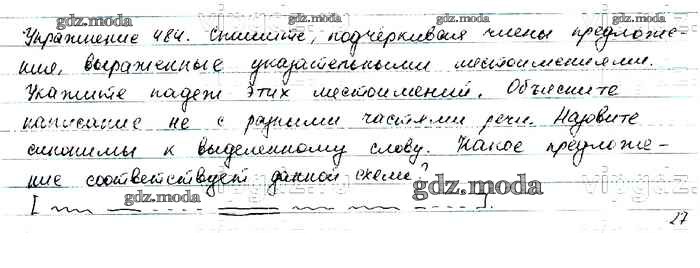 gdz.moda gdz.moda gdz.moda
Упражнение 484. Спишите, подчёркивая члены предложе-
ния, выраженные указательными местоимениями.
Укажите падеж этих местоимений. Объясните
написание не с разными частями речи. Назовите
синонимы к выделенному слову. Какое предложе-
ние соответствует данной схеме?
gdz.moda gdz.moda
27